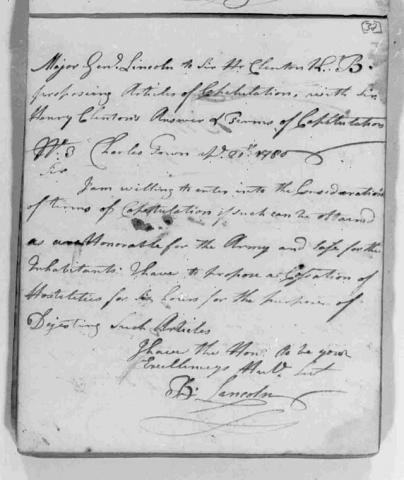 33
Major Genl. Lincoln to Sir Hy. Clinton K. B.
proposing Articles of Capitulation, with Sir
Henry Clinton's Answer of Terms of Capitulation
No. 3 Charles Town Apl. 21st. 1780
Sir
I am willing to enter into the Consideration
of terms of Capitulation if such can be obtaind
as are Honorable for the Army and safe for the
Inhabitants. I have to propose a Cessation of
Hostilities for Six hours for the purpose of
Digesting Such Articles
I have the Honr. to be your
Excellencys Hule. Sert
B. Lincoln